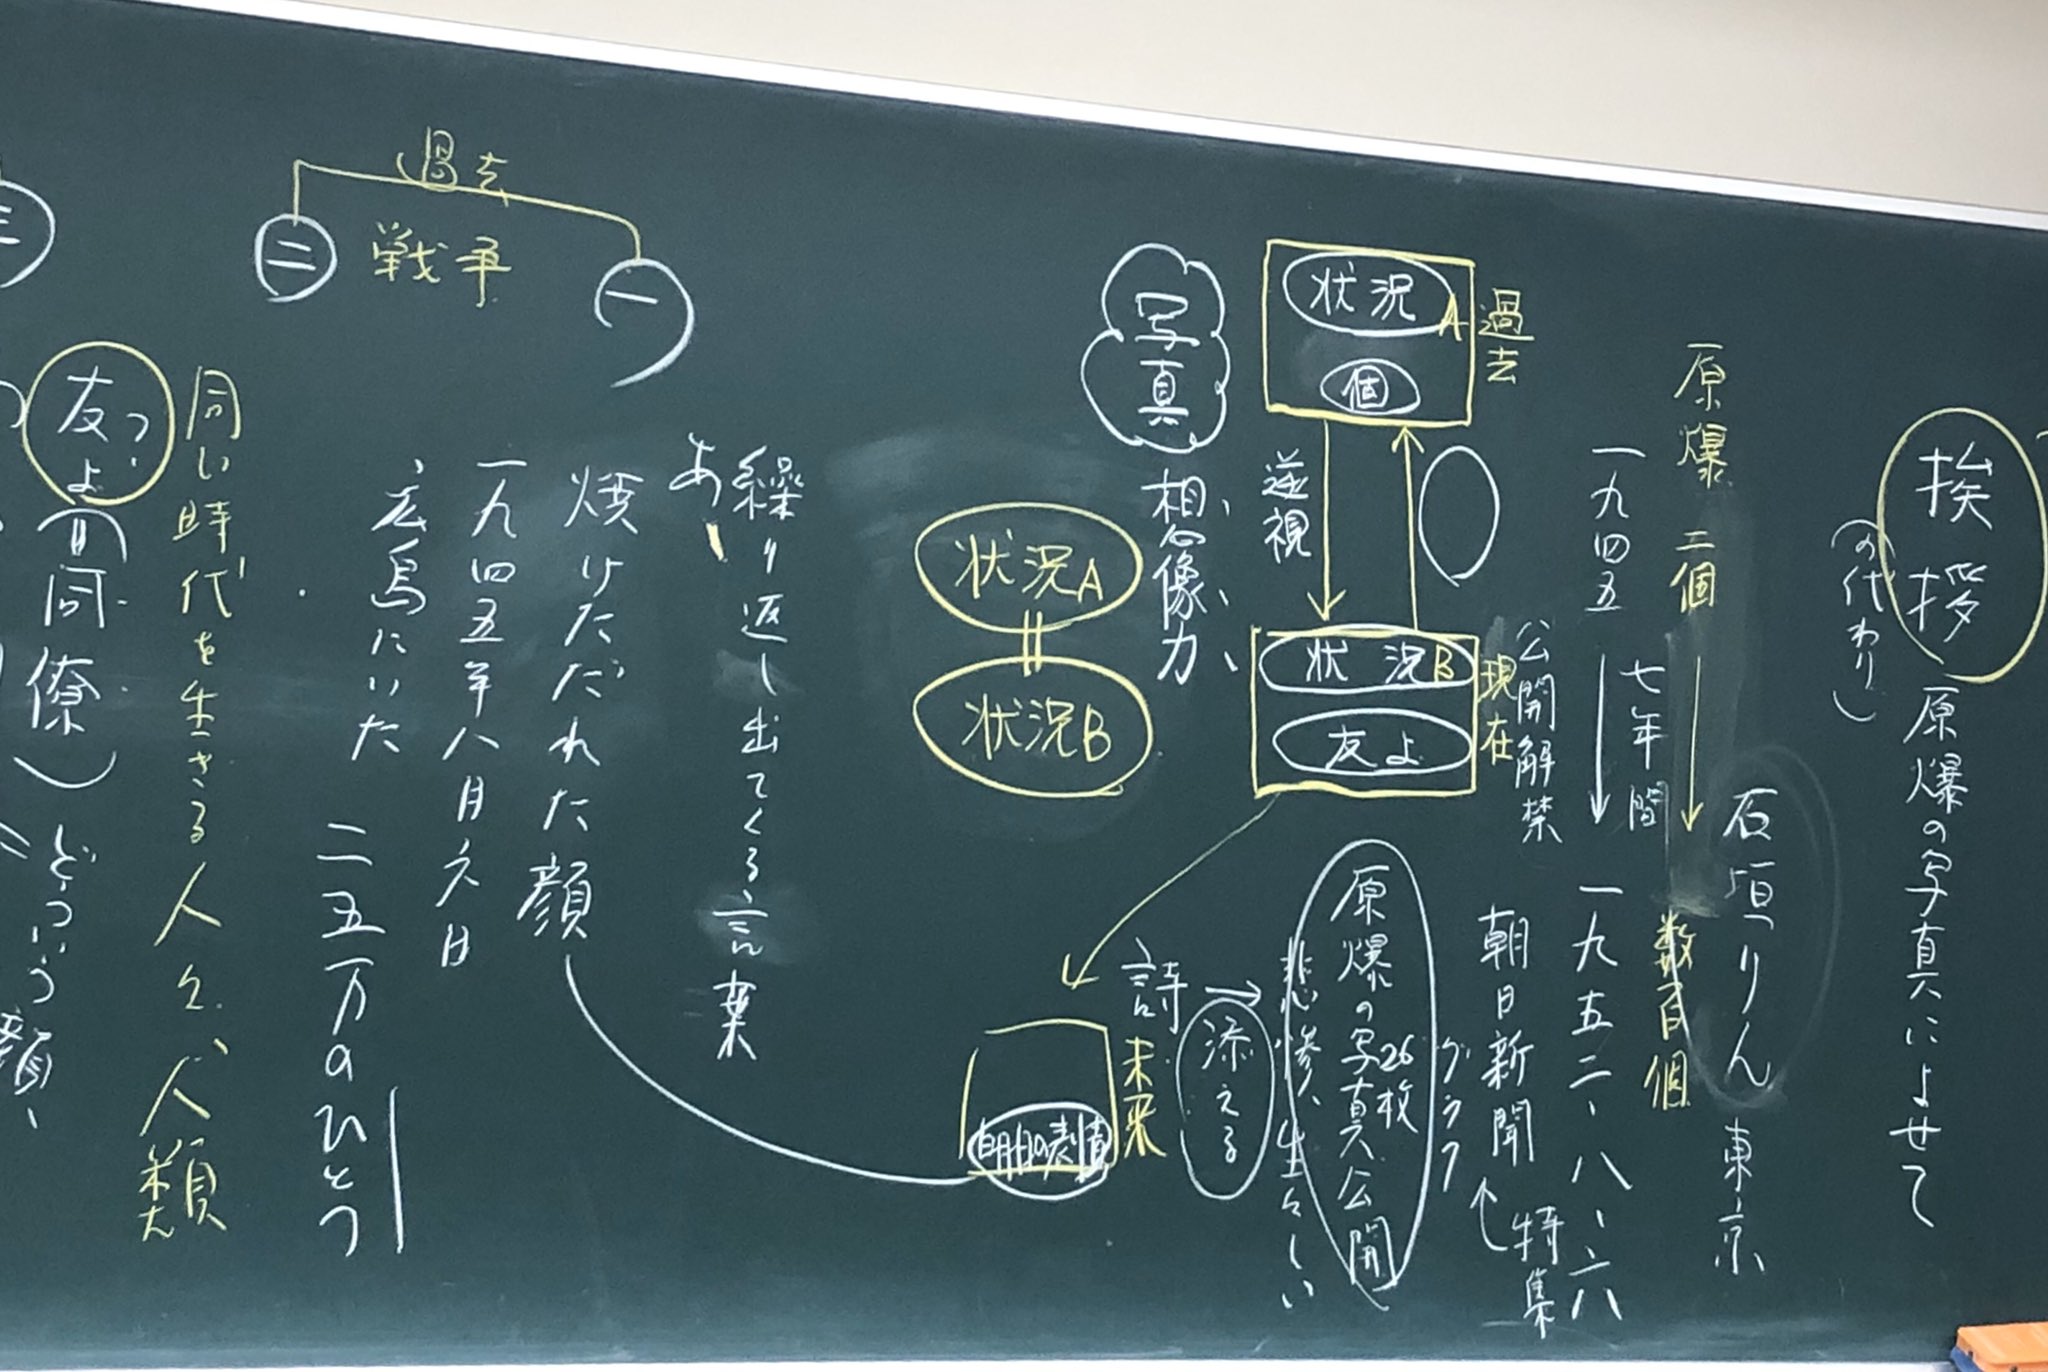 挨拶
(の代わり)
原爆の写真によせて
石垣りん 東京
原爆 二個
数百個
一九四五
七年間
一九五二、八、六
公開解禁
朝日新聞
グラフ
特集
原爆の写真公開
26枚
悲惨、生々しい
詩
添える
過去
状況A
個
逆視
現在
状況B
友よ
未来
写真
想像力、
状況A
状況B
繰り返し出てくる言葉
あ、
焼けただれた顔
一九四五年八月六日
広島にいた
二五万のひとつ
一
過去
戦争
二
同い時代を生きる人々、人類
友よ
同僚)
どういう顔、